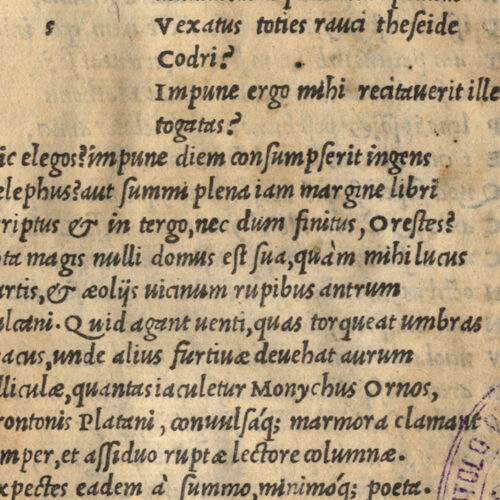 s Vexatus toties rauci theseide
Codri?
Impune ergo mihi recitauerit ille
togatas?
ic elegos? impune diem consumpserit ingens
elephus? aut summi plena iam margine libri
criptus & in tergo, nec dum finitus, Orestes?
ota magis nulli domus est sua, quàm mihi lucus
artis, & æolijs uicinum rupibus antrum
ulcani. Quid agant uenti, quas torqueat umbras
acus, unde alius furtiuæ deuehat aurum
lliculæ, quantas iaculetur Monychus Ornos,
rontonis Platani, conuulsáq; marmora clamant
mper, et assiduo ruptæ lectore columnæ.
xpectes eadem à summo, minimóq; poeta.
TOLO